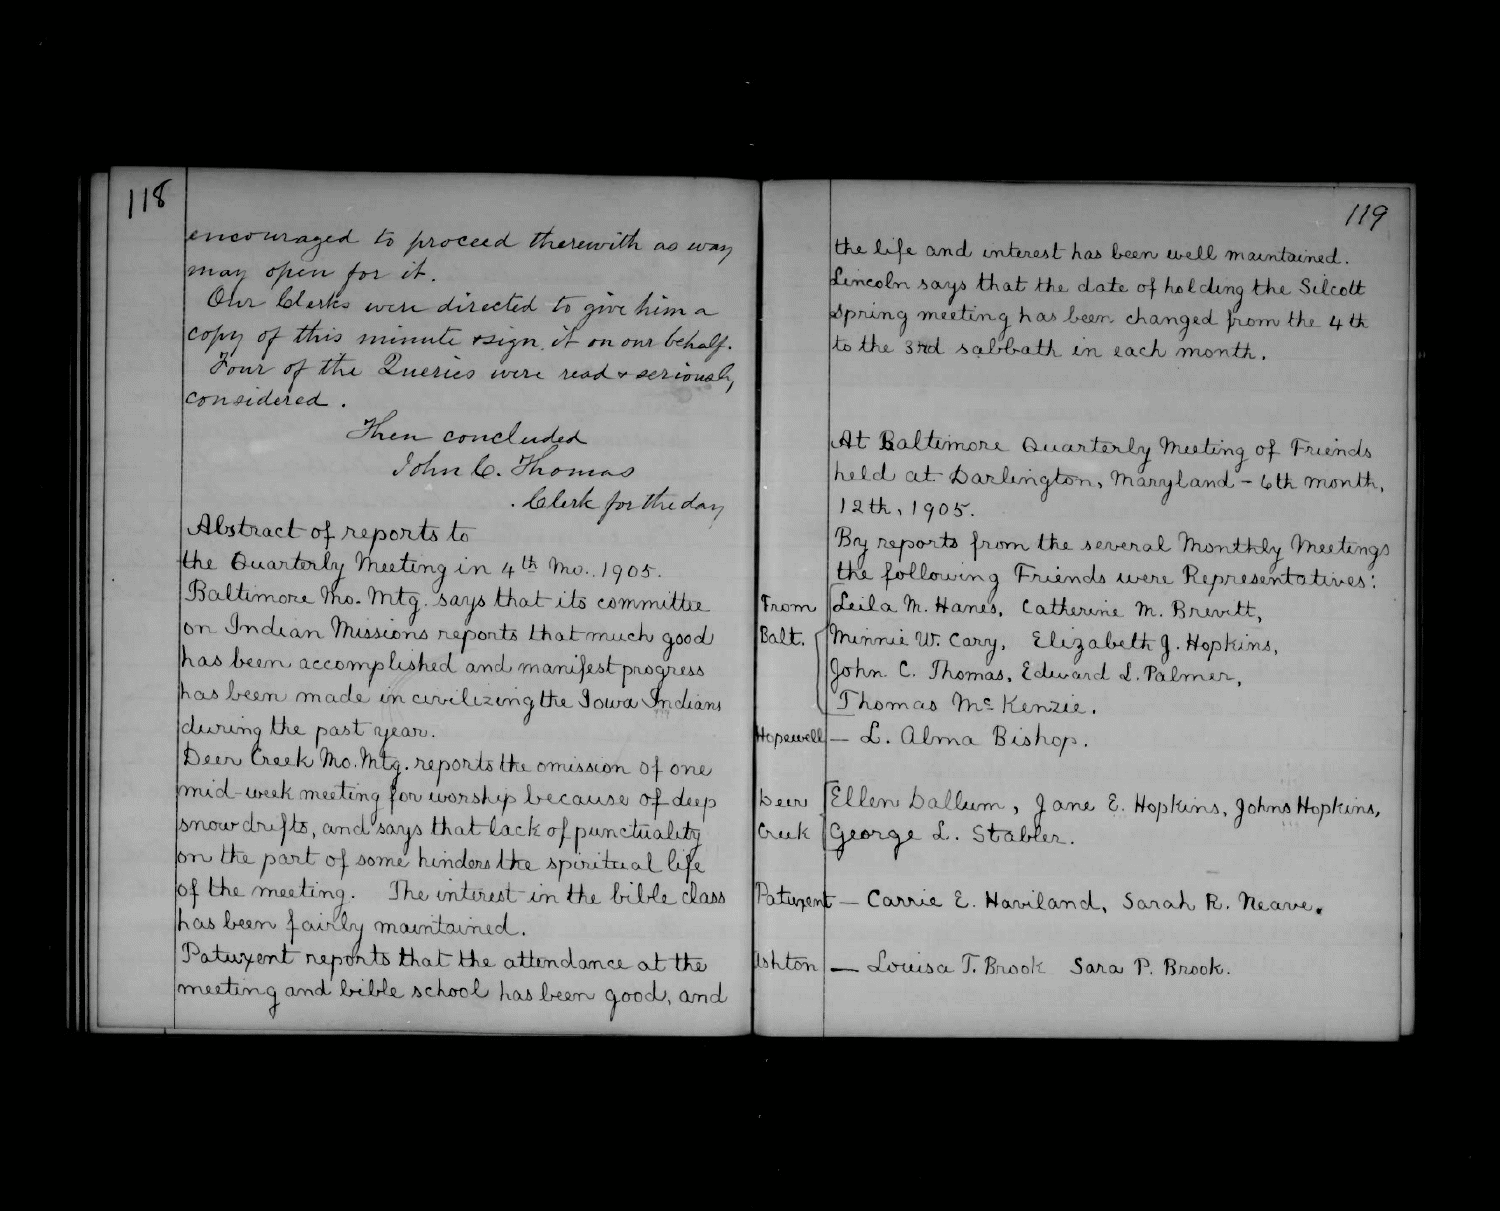 118
encouraged to proceed therewith as way
may open for it.
Our Clerks were directed to give him a
copy of this minute & sign it on our behalf.
Four of the Queries were read & seriously
considered.
Then concluded
John C. Thomas
Clerk for the day
Abstract of reports to
the Quarterly Meeting in 4th Mo. 1905.
Baltimore Mo. Mtg. says that its committee
on Indian Missions reports that much good
has been accomplished and manifest progress
has been made in civilizing the Iowa Indians
during the past year.
Deer Creek Mo. Mtg. reports the omission of one
mid-week meeting for worship because of deep
snow drifts, and says that lack of punctuality
on the part of some hinders the spiritual life
of the meeting. The interest in the bible class
has been fairly maintained.
Patuxent reports that the attendance at the
meeting and bible school has been good, and
119
the life and interest has been well maintained.
Lincoln says that the date of holding the Silcott
Spring meeting has been changed from the 4th
to the 3rd sabbath in each month.
At Baltimore Quarterly Meeting of Friends
held at Darlington, Maryland - 6th month,
12th, 1905.
By reports from the several Monthly Meetings
the following Friends were Representatives:
From Leila M. Hanes, Catherine M. Brevitt,
Balt. Minnie W. Cary, Elizabeth J. Hopkins,
John C. Thomas, Edward L. Palmer,
Thomas McKenzie.
Hopewell — L. Alma Bishop.
Deer Ellen Dallum, Jane E. Hopkins, Johns Hopkins,
Creek George L. Stabler.
Patuxent — Carrie E. Haviland, Sarah R. Neave.
Ashton — Louisa T. Brook Sara P. Brook.